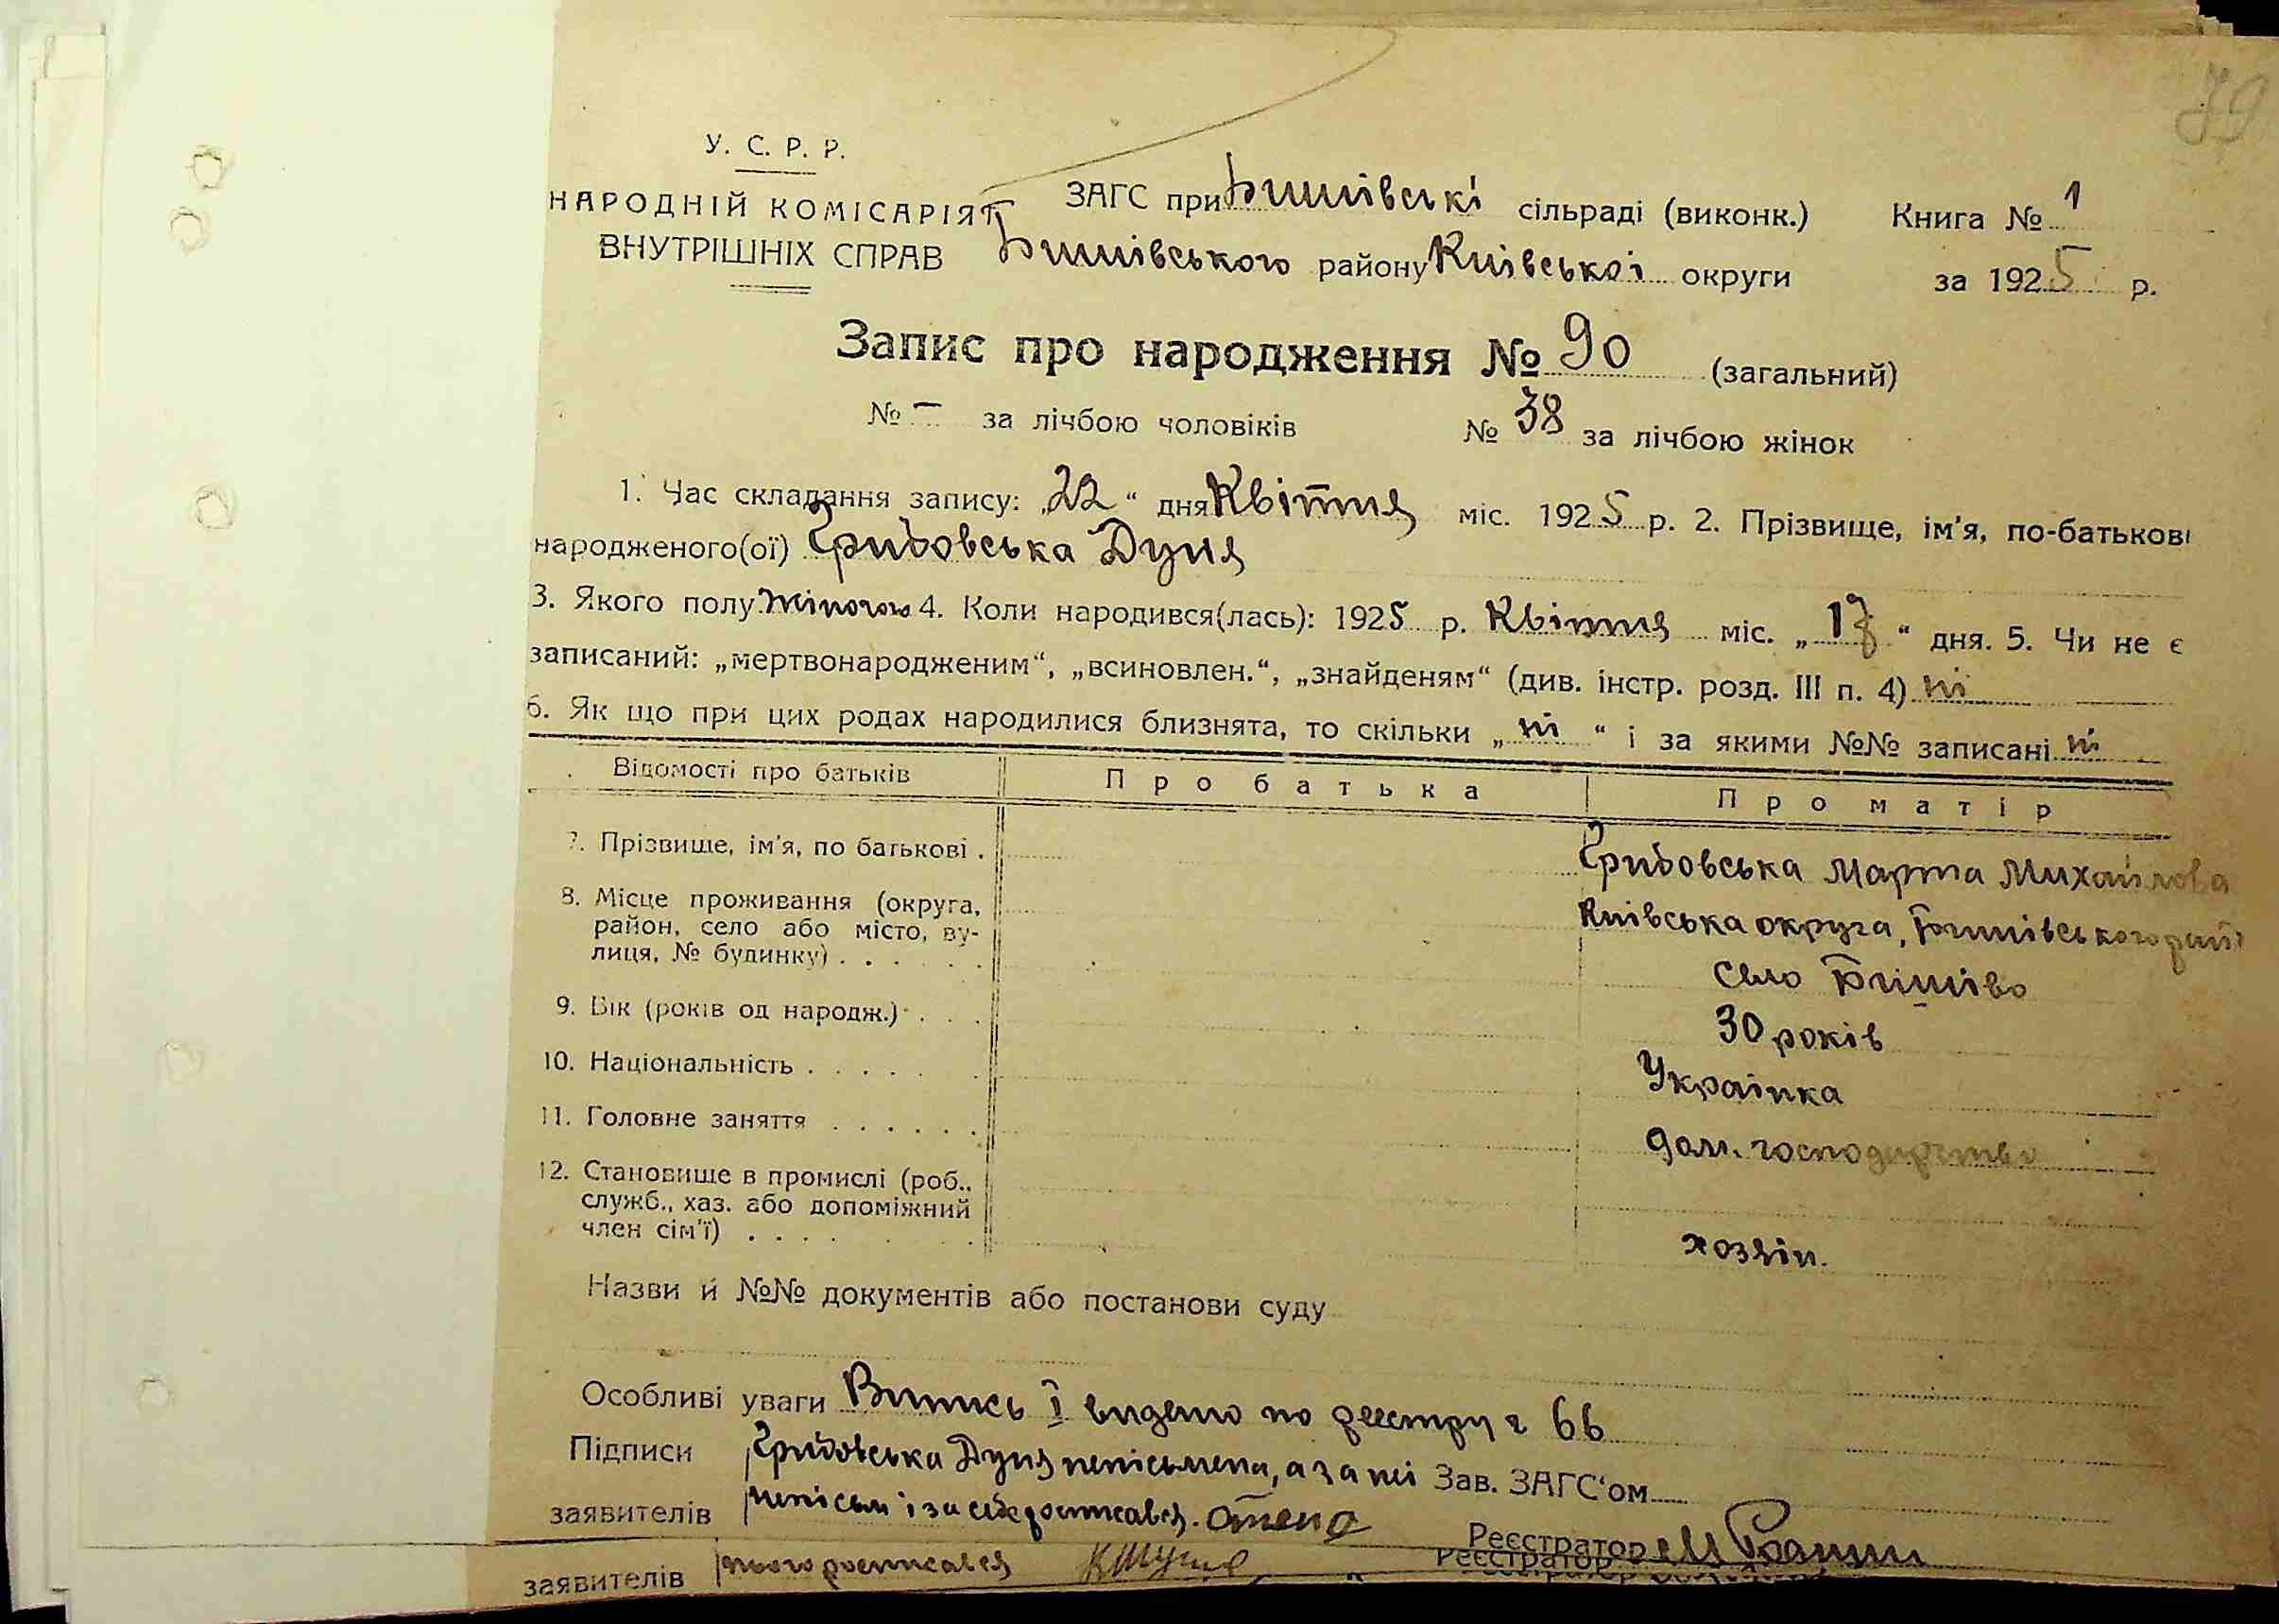 79
У. С. Р. Р.
НАРОДНІЙ КОМІСАРІЯТ
ВНУТРІШНІХ СПРАВ
ЗАГС при Бишівські сільраді (виконк.) Книга № 1
Бишівського району Київської округи за 1925 р.
Запис про народження № 90 (загальний)
№ – за лічбою чоловіків № 38 за лічбою жінок
1. Час складання запису: „22“ дня Квітня міс. 1925 р. 2. Прізвище, ім’я, по-батькові
народженого(ої) Грибовська Дуня
3. Якого полу жіночого 4. Коли народився(лась): 1925 р. Квітня міс. „17“ дня. 5. Чи не є
записаний: „мертвонародженим“, „всиновлен.“, „знайденям“ (див. інстр. розд. III п. 4) ні
6. Як що при цих родах народилися близнята, то скільки „ні“ і за якими №№ записані ні
Відомості про батьків Про батька Про матір
7. Прізвище, ім’я, по батькові . Грибовська Марта Михайлова
8. Місце проживання (округа, Київська округа, Бишівського рай
район, село або місто, ву-
лиця, № будинку) . . . . . село Бишіво
9. Вік (років од народж.) . . . 30 років
10. Національність . . . . . Українка
11. Головне заняття . . . . . . дом. господарство
12. Становище в промислі (роб.,
служб., хаз. або допоміжний
член сім’ї) . . . . хозяін.
Назви й №№ документів або постанови суду
Особливі уваги Випись І видано по реєстру 66
Підписи Грибовська Дуня неписьмена, а за неї Зав. ЗАГС‘ом
заявителів росписався.
Реєстратор
заявителів росписався
Реєстратор